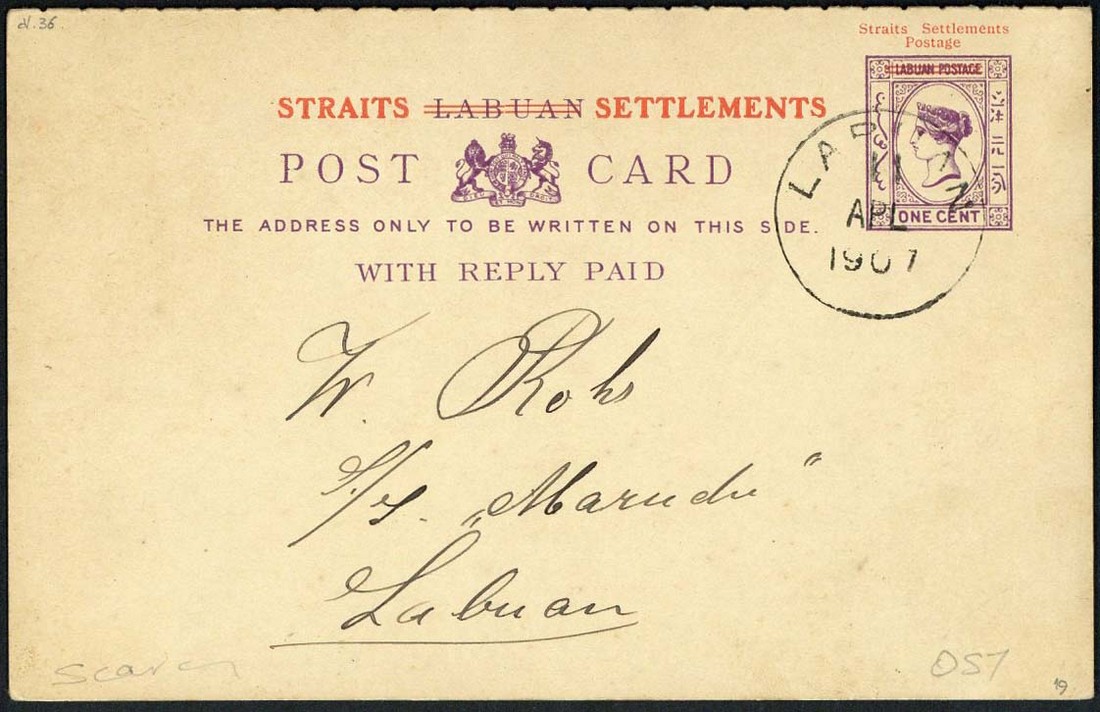 cV.36.
Straits Settlements
Postage
LABUAN POSTAGE
STRAITS LABUAN SETTLEMENTS
POST CARD
THE ADDRESS ONLY TO BE WRITTEN ON THIS SIDE.
WITH REPLY PAID
ONE CENT
LABUAN
11
APL
1907
W. Rohs
S/S. „Marudu"
Labuan
OST
19